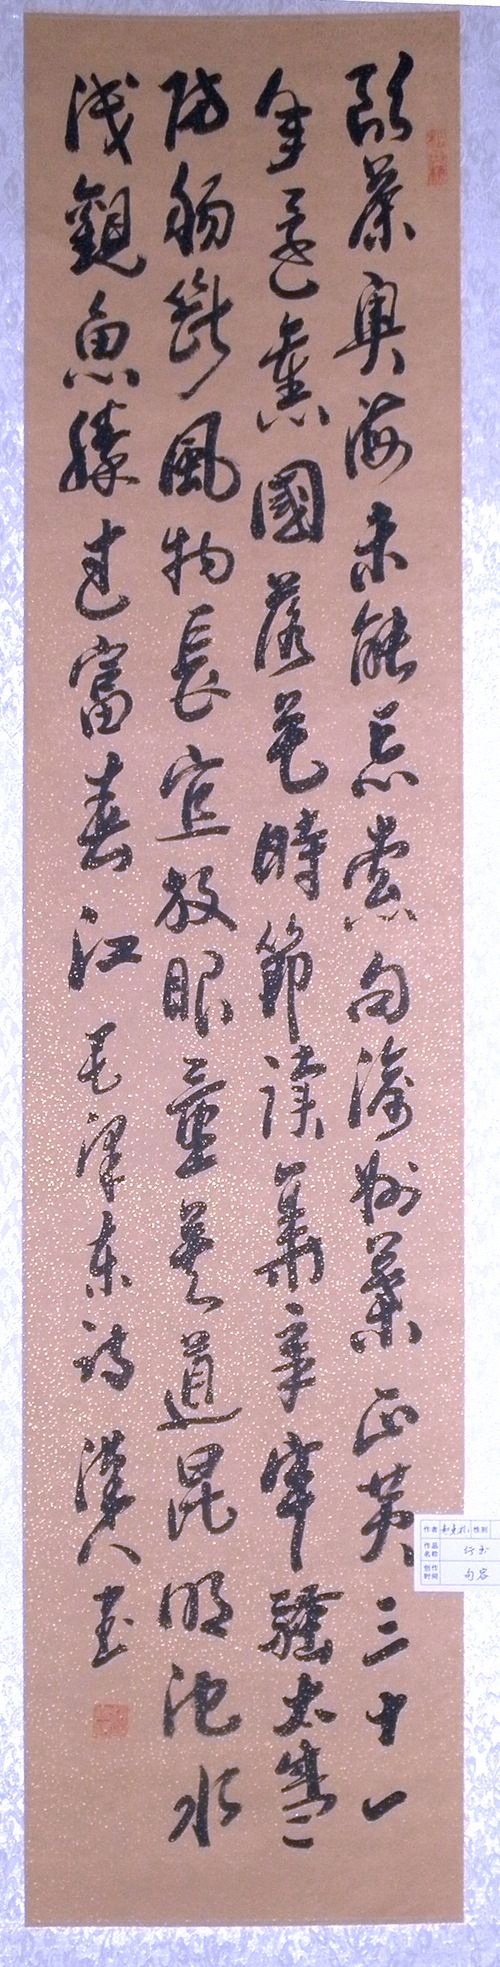 飲茶奥海未能忘索句渝州葉正黄三十一
年還舊國落花時節读華章牢騷太盛
防腸斷風物長宜放眼量莫道昆明池水
淺觀魚勝过富春江毛澤東詩漢人书
作者 性别
作品名称 行书
创作时间 句容